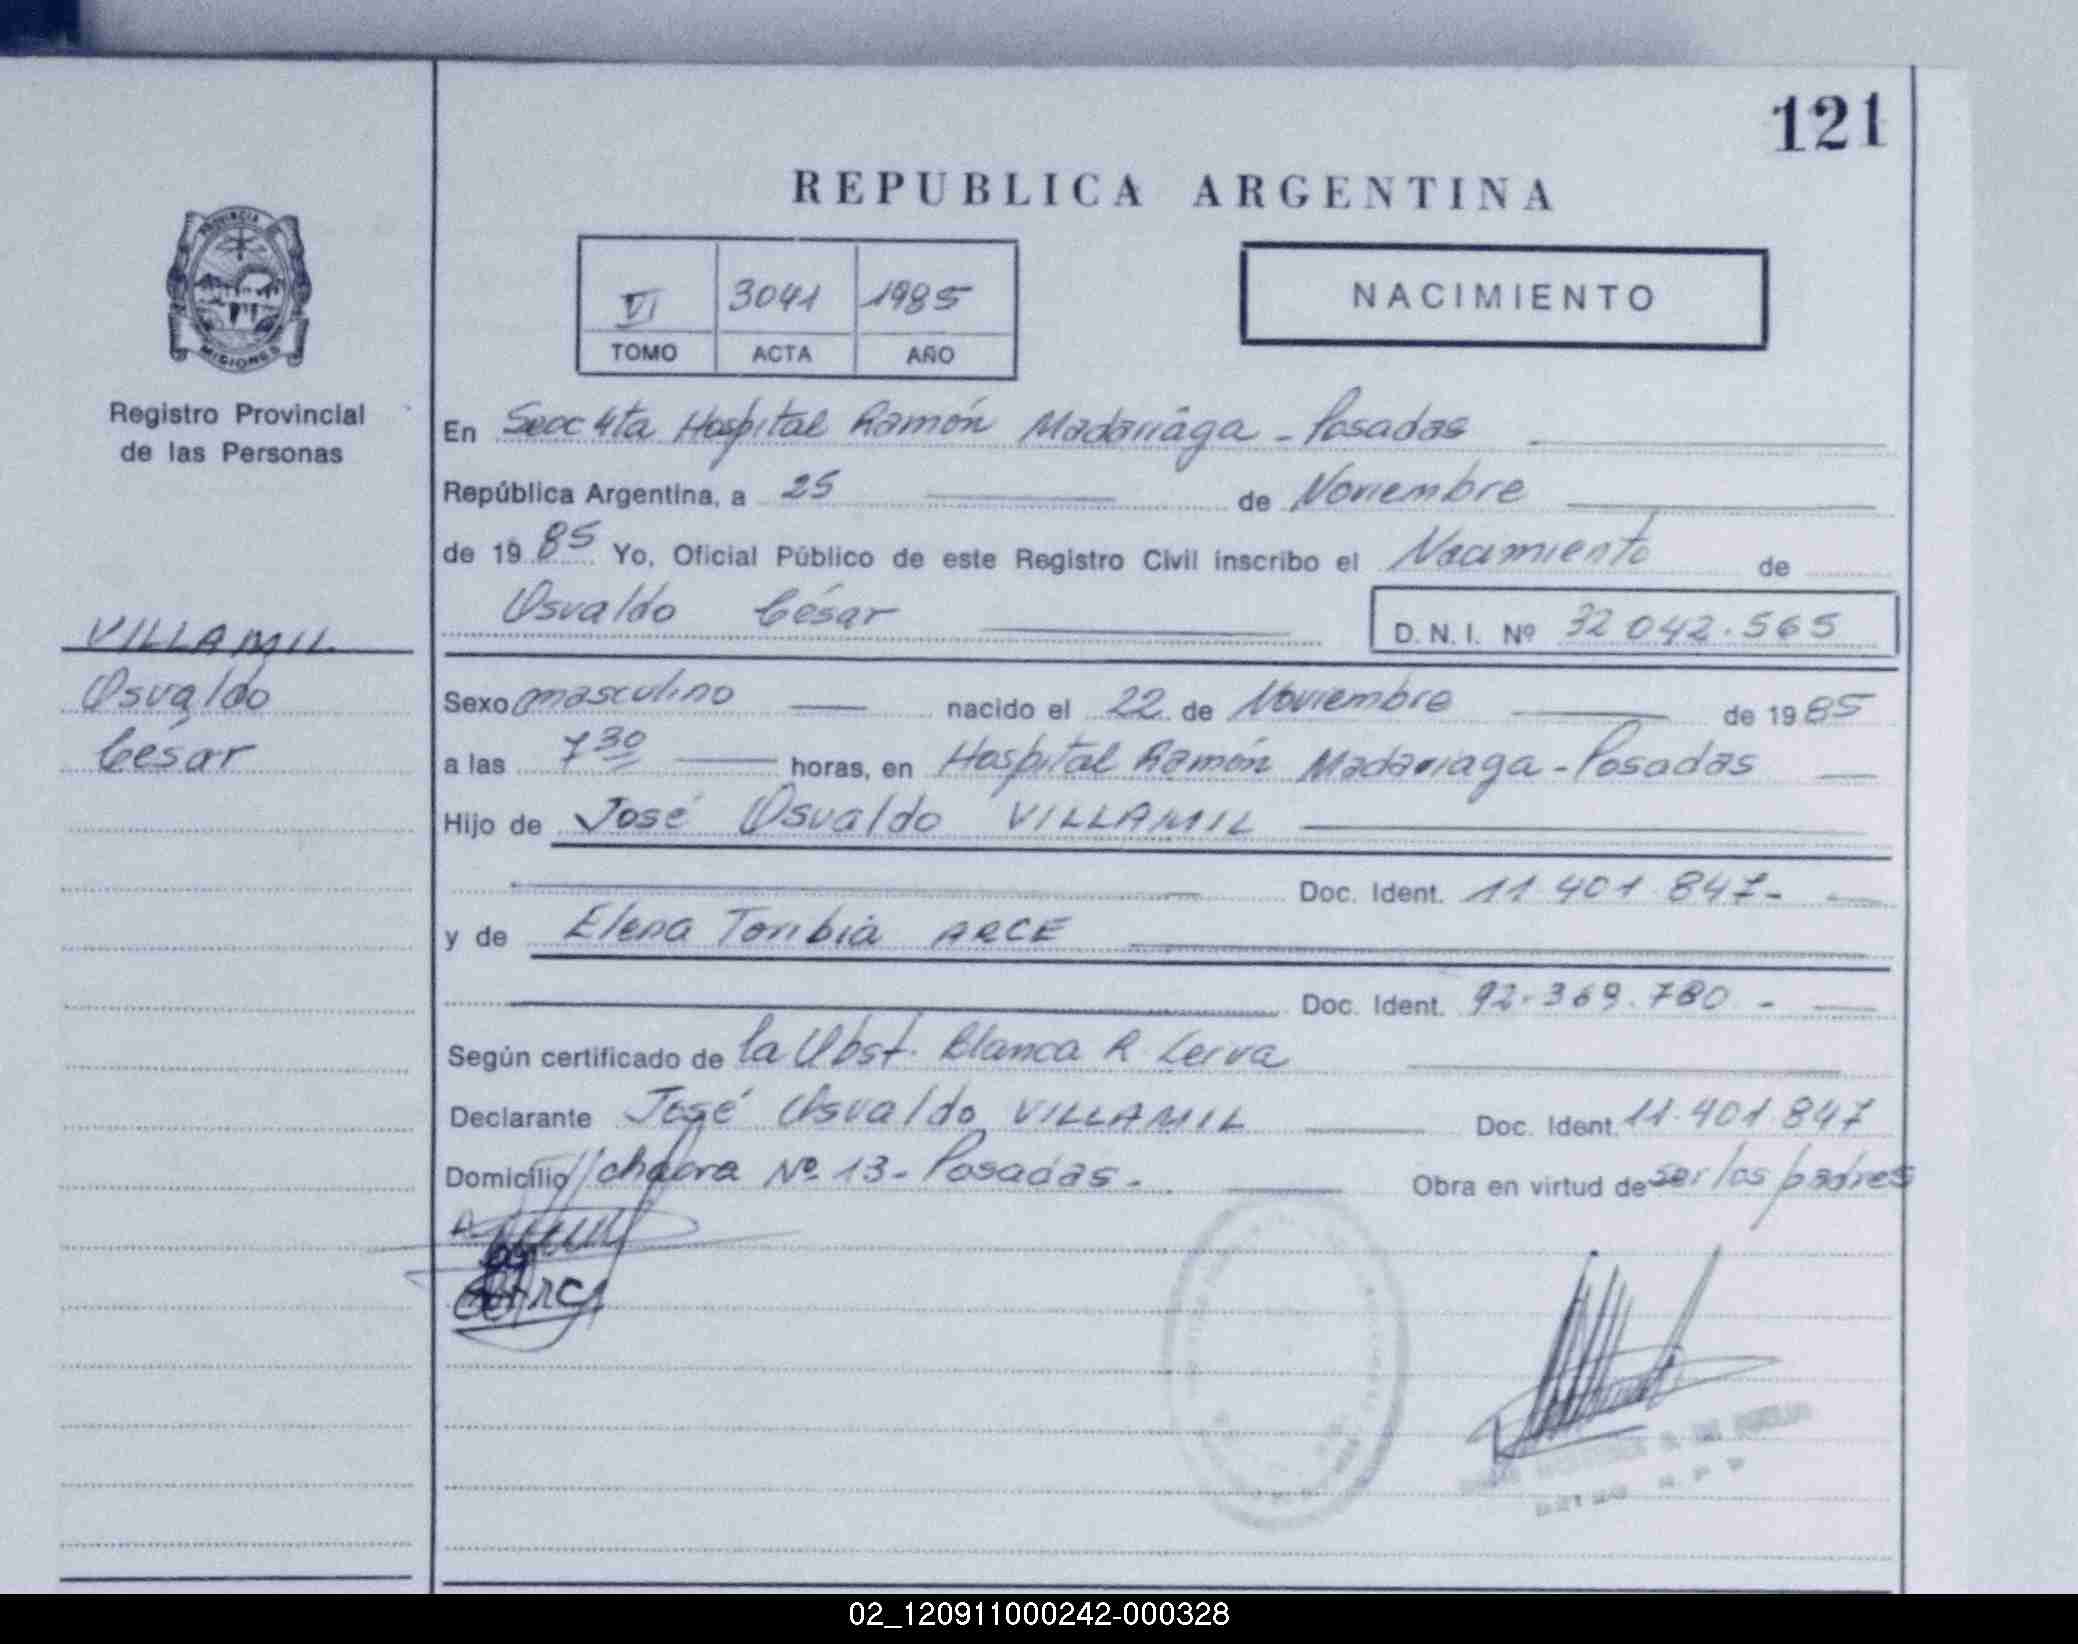 121
REPUBLICA ARGENTINA
PROVINCIA
MISIONES
Registro Provincial
de las Personas
VI 3041 1985
TOMO ACTA AÑO
NACIMIENTO
En Secc 4ta Hospital Ramón Madariaga - Posadas
República Argentina, a 25 de Noviembre
de 1985 Yo, Oficial Público de este Registro Civil inscribo el Nacimiento de
Osvaldo César D. N. I. Nº 32 042.565
VILLAMIL
Osvaldo
César
Sexo masculino nacido el 22 de Noviembre de 1985
a las 7 30 horas, en Hospital Ramón Madariaga - Posadas
Hijo de José Osvaldo VILLAMIL
Doc. Ident. 11 401 847-
y de Elena Toribia ARCE
Doc. Ident. 92.369.780 -
Según certificado de la Obst. Blanca R. Leiva
Declarante José Osvaldo VILLAMIL Doc. Ident. 11.401.847
Domicilio chacra Nº 13 - Posadas. Obra en virtud de ser los padres
02_120911000242-000328